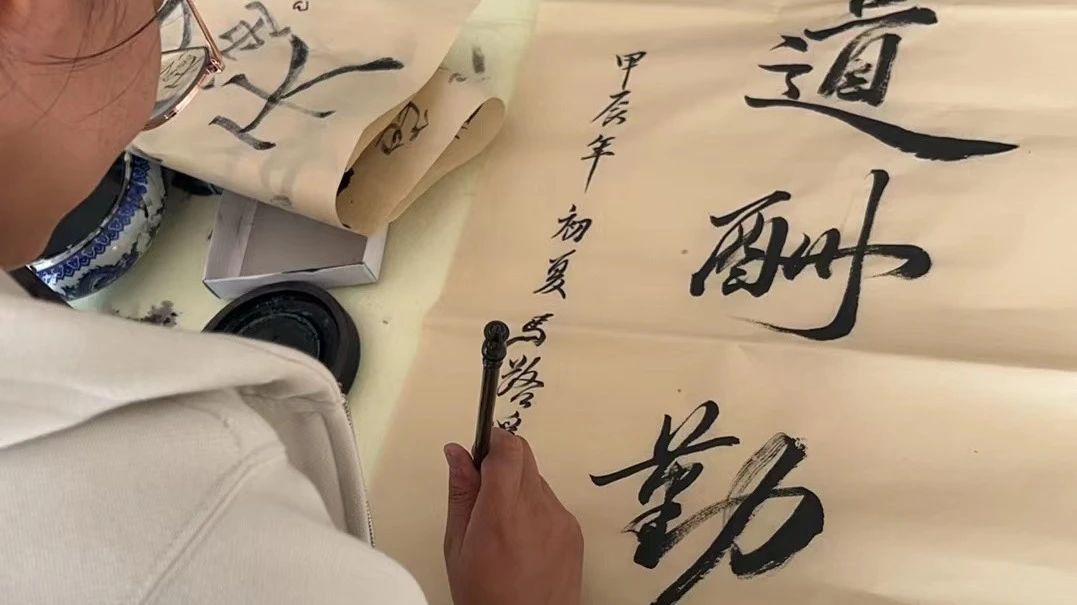 道酬勤
甲辰年初夏馬
天